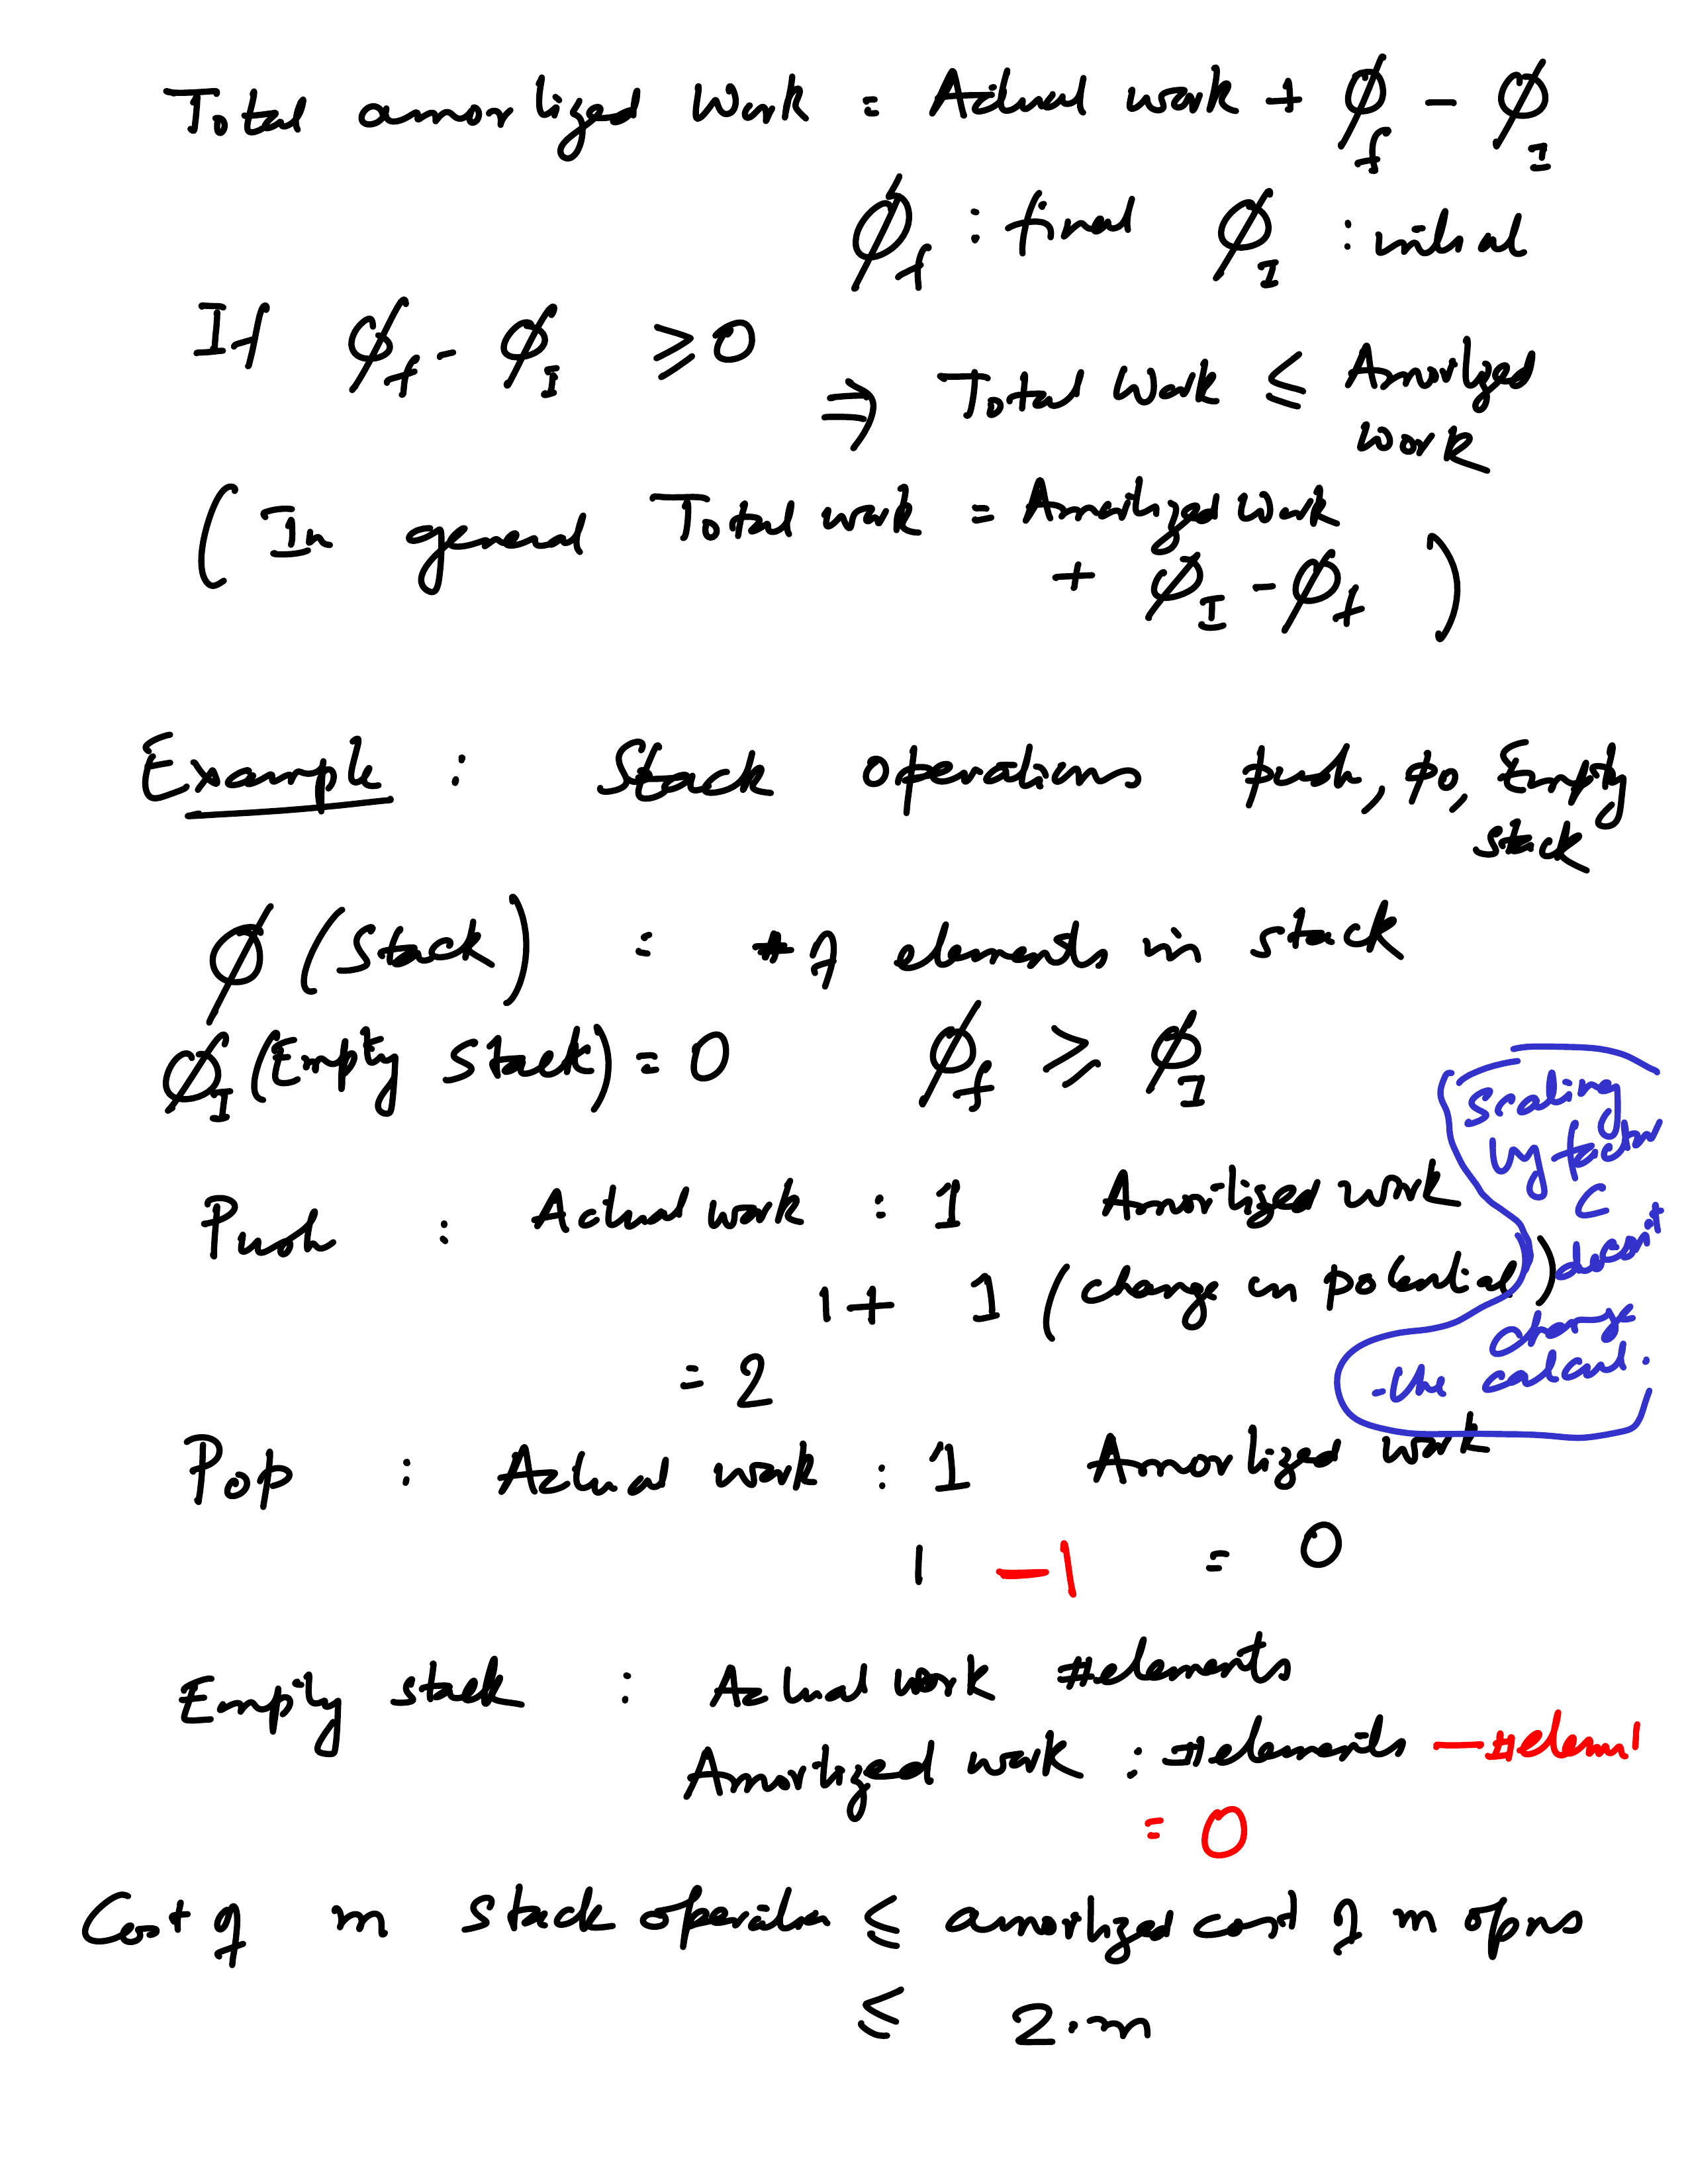 Total amortized Work = Actual work + ϕ_f - ϕ_I
ϕ_f : final ϕ_I : initial
If ϕ_f - ϕ_I ≥ 0
⇒ Total Work ≤ Amortized
work
( In general Total work = Amortized Work
+ ϕ_I - ϕ_f )
Example : Stack operations push, po, Empty
stack
ϕ (Stack) = # of elements in stack
ϕ_I (Empty Stack) = 0 ϕ_f ≥ ϕ_I
Scaling
by factor
C
doesn't
change
the calcul.
Push : Actual work : 1 Amortized work
1 + 1 (change in potential)
= 2
Pop : Actual work : 1 Amortized work
1 - 1 = 0
Empty stack : Actual work #elements
Amortized work : #elements - #elem
= 0
Cost of m stack operation ≤ amortized cost of m opns
≤ 2.m